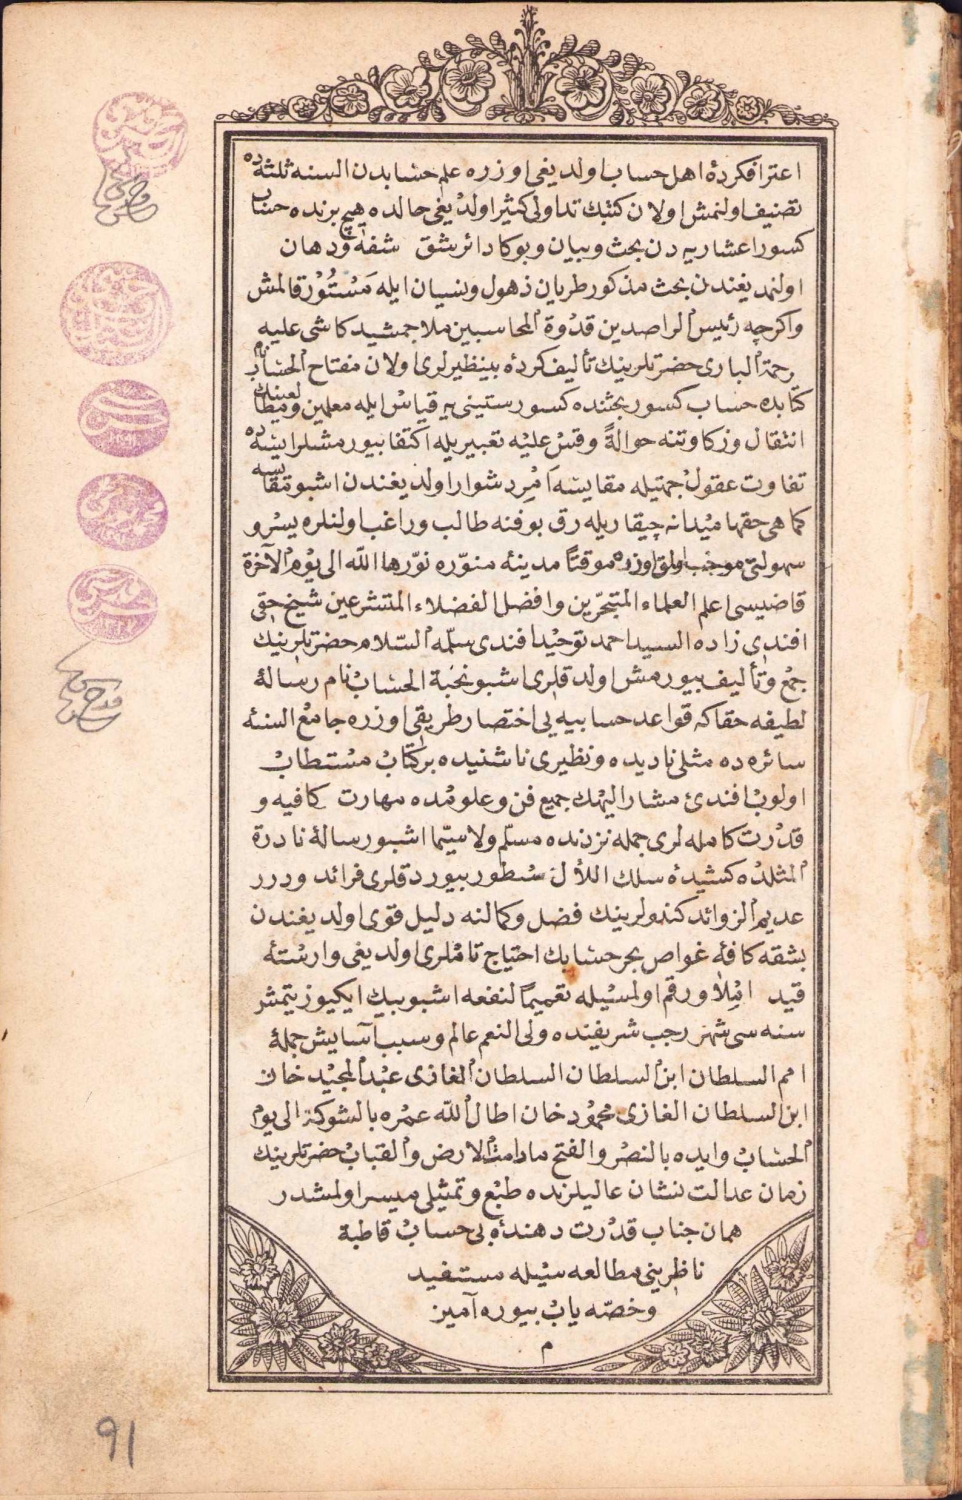 اعترافكردهٔ اهل حساب اولديغی اوزره علم حسابدن السنه ثلثه ده
تصنيف اولنمش اولان كتبك تداولی كثير اولديغی حالده هيچ برنده حساب
كسور اعشاريه دن بحث وبيان وبوكا دائر شق شفه ودهان
اولنمديغندن بحث مذكور طريان ذهول ونسيان ايله مَسْتُوْر قالمش
واكرچه رئيس الراصدين قدوة المحاسبين ملا جمشيد كاشی عليه
رحمة الباری حضرتلرينك تأليفكردهٔ بينظيرلری اولان مفتاح الحساب نام
كتابده حساب كسور بحثنده كسور ستينی يه قياس ايله معلمين ومطالعينك
انتقال وزكاوتنه حوالةً وقس عليه تعبيريله اكتفا بيورمشلرايسه ده
تفاوت عقول جهتيله مقايسه امْرِ دشوار اولديغندن اشبو مقايسه
كما هی حقها ميدانه چيقاريله رق بوفنه طالب وراغب اولنلره يسر و
سهولتی موجب اولمق اوزره موقتاً مدينهٔ منوّره نوّرها اللّه الی يوم الآخرة
قاضيسی اعلم العلماء المتبحّرين وافضل الفضلاء المتشرعين شيخ حقی
افندی زاده السيد احمد توحيد افندی سلّمه السّلام حضرتلرينك
جمع وتأليف بيورمش اولدقلری اشبو نخبة الحساب نام رسالهٔ
لطيفه حقاكه قواعد حسابيه يی اختصار طريقی اوزره جامع السنهٔ
سائره ده مثلی ناديده ونظيری ناشنيده بر كتاب مستطاب
اولوب افندئ مشار اليهك جميع فن وعلومده مهارت كافيه و
قدرت كامله لری جمله نزدنده مسلم ولا سيّما اشبو رسالهٔ نادرة
المثلده كشيدهٔ سلك اللأل سطور بيوردقلری فرائد ودرر
عديم الزوائد كندولرينك فضل وكمالنه دليل قوی اولديغندن
بشقه كافهٔ غواص بحر حسابك احتياج تاملری اولديغی وارستهٔ
قيد املا ورقم اولمسيله تعميماً لنفعه اشبو بيك ايكيوز يتمش
سنه سی شهر رجب شريفنده ولی النعم عالم وسبب آسايش جملهٔ
امم السلطان ابن السلطان السلطان الغازی عبد المجيد خان
ابن السلطان الغازی محمود خان اطال اللّه عمره بالشوكة الی يوم
الحساب وايده بالنصر والفتح مادامت الارض والقباب حضرتلرينك
زمان عدالت نشان عاليلرنده طبع وتمثيلی ميسر اولمشدر
همان جناب قدرت دهندهٔ بی حساب قاطبهٔ
ناظرينی مطالعه سيله مستفيد
وحصّه ياب بيوره آمين
م
٩١